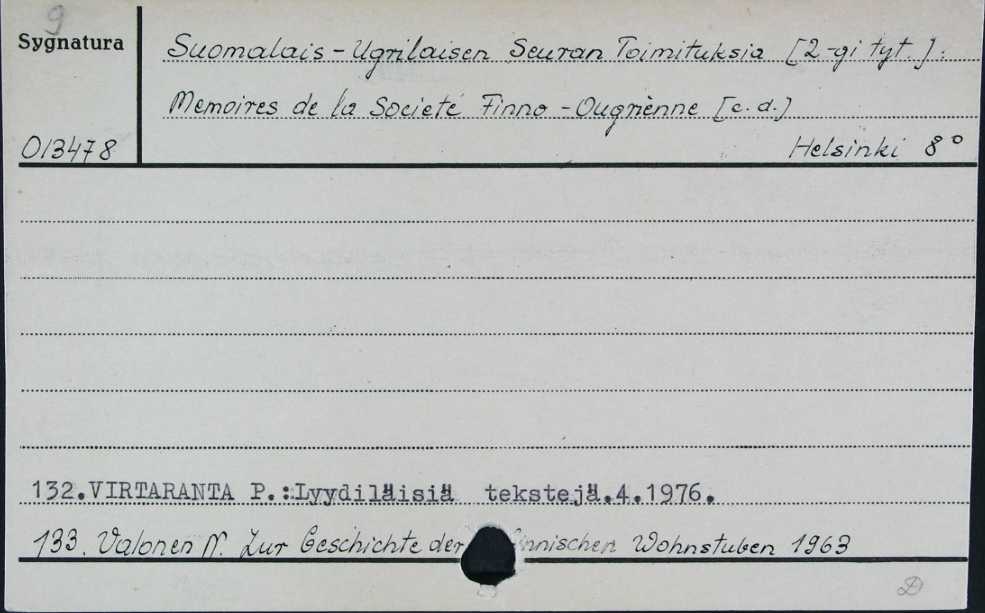 9
Sygnatura
Suomalais-Ugrilaisen Seuran Toimituksia [2-gi tyt.]:
Memoires de la Societé Finno-Ougriènne [c.d.]
013478
Helsinki 8°
132.VIRTARANTA P.:Lyydiläisiä tekstejä.4.1976.
133. Valonen N. Zur Geschichte der finnischen Wohnstuben 1963
D